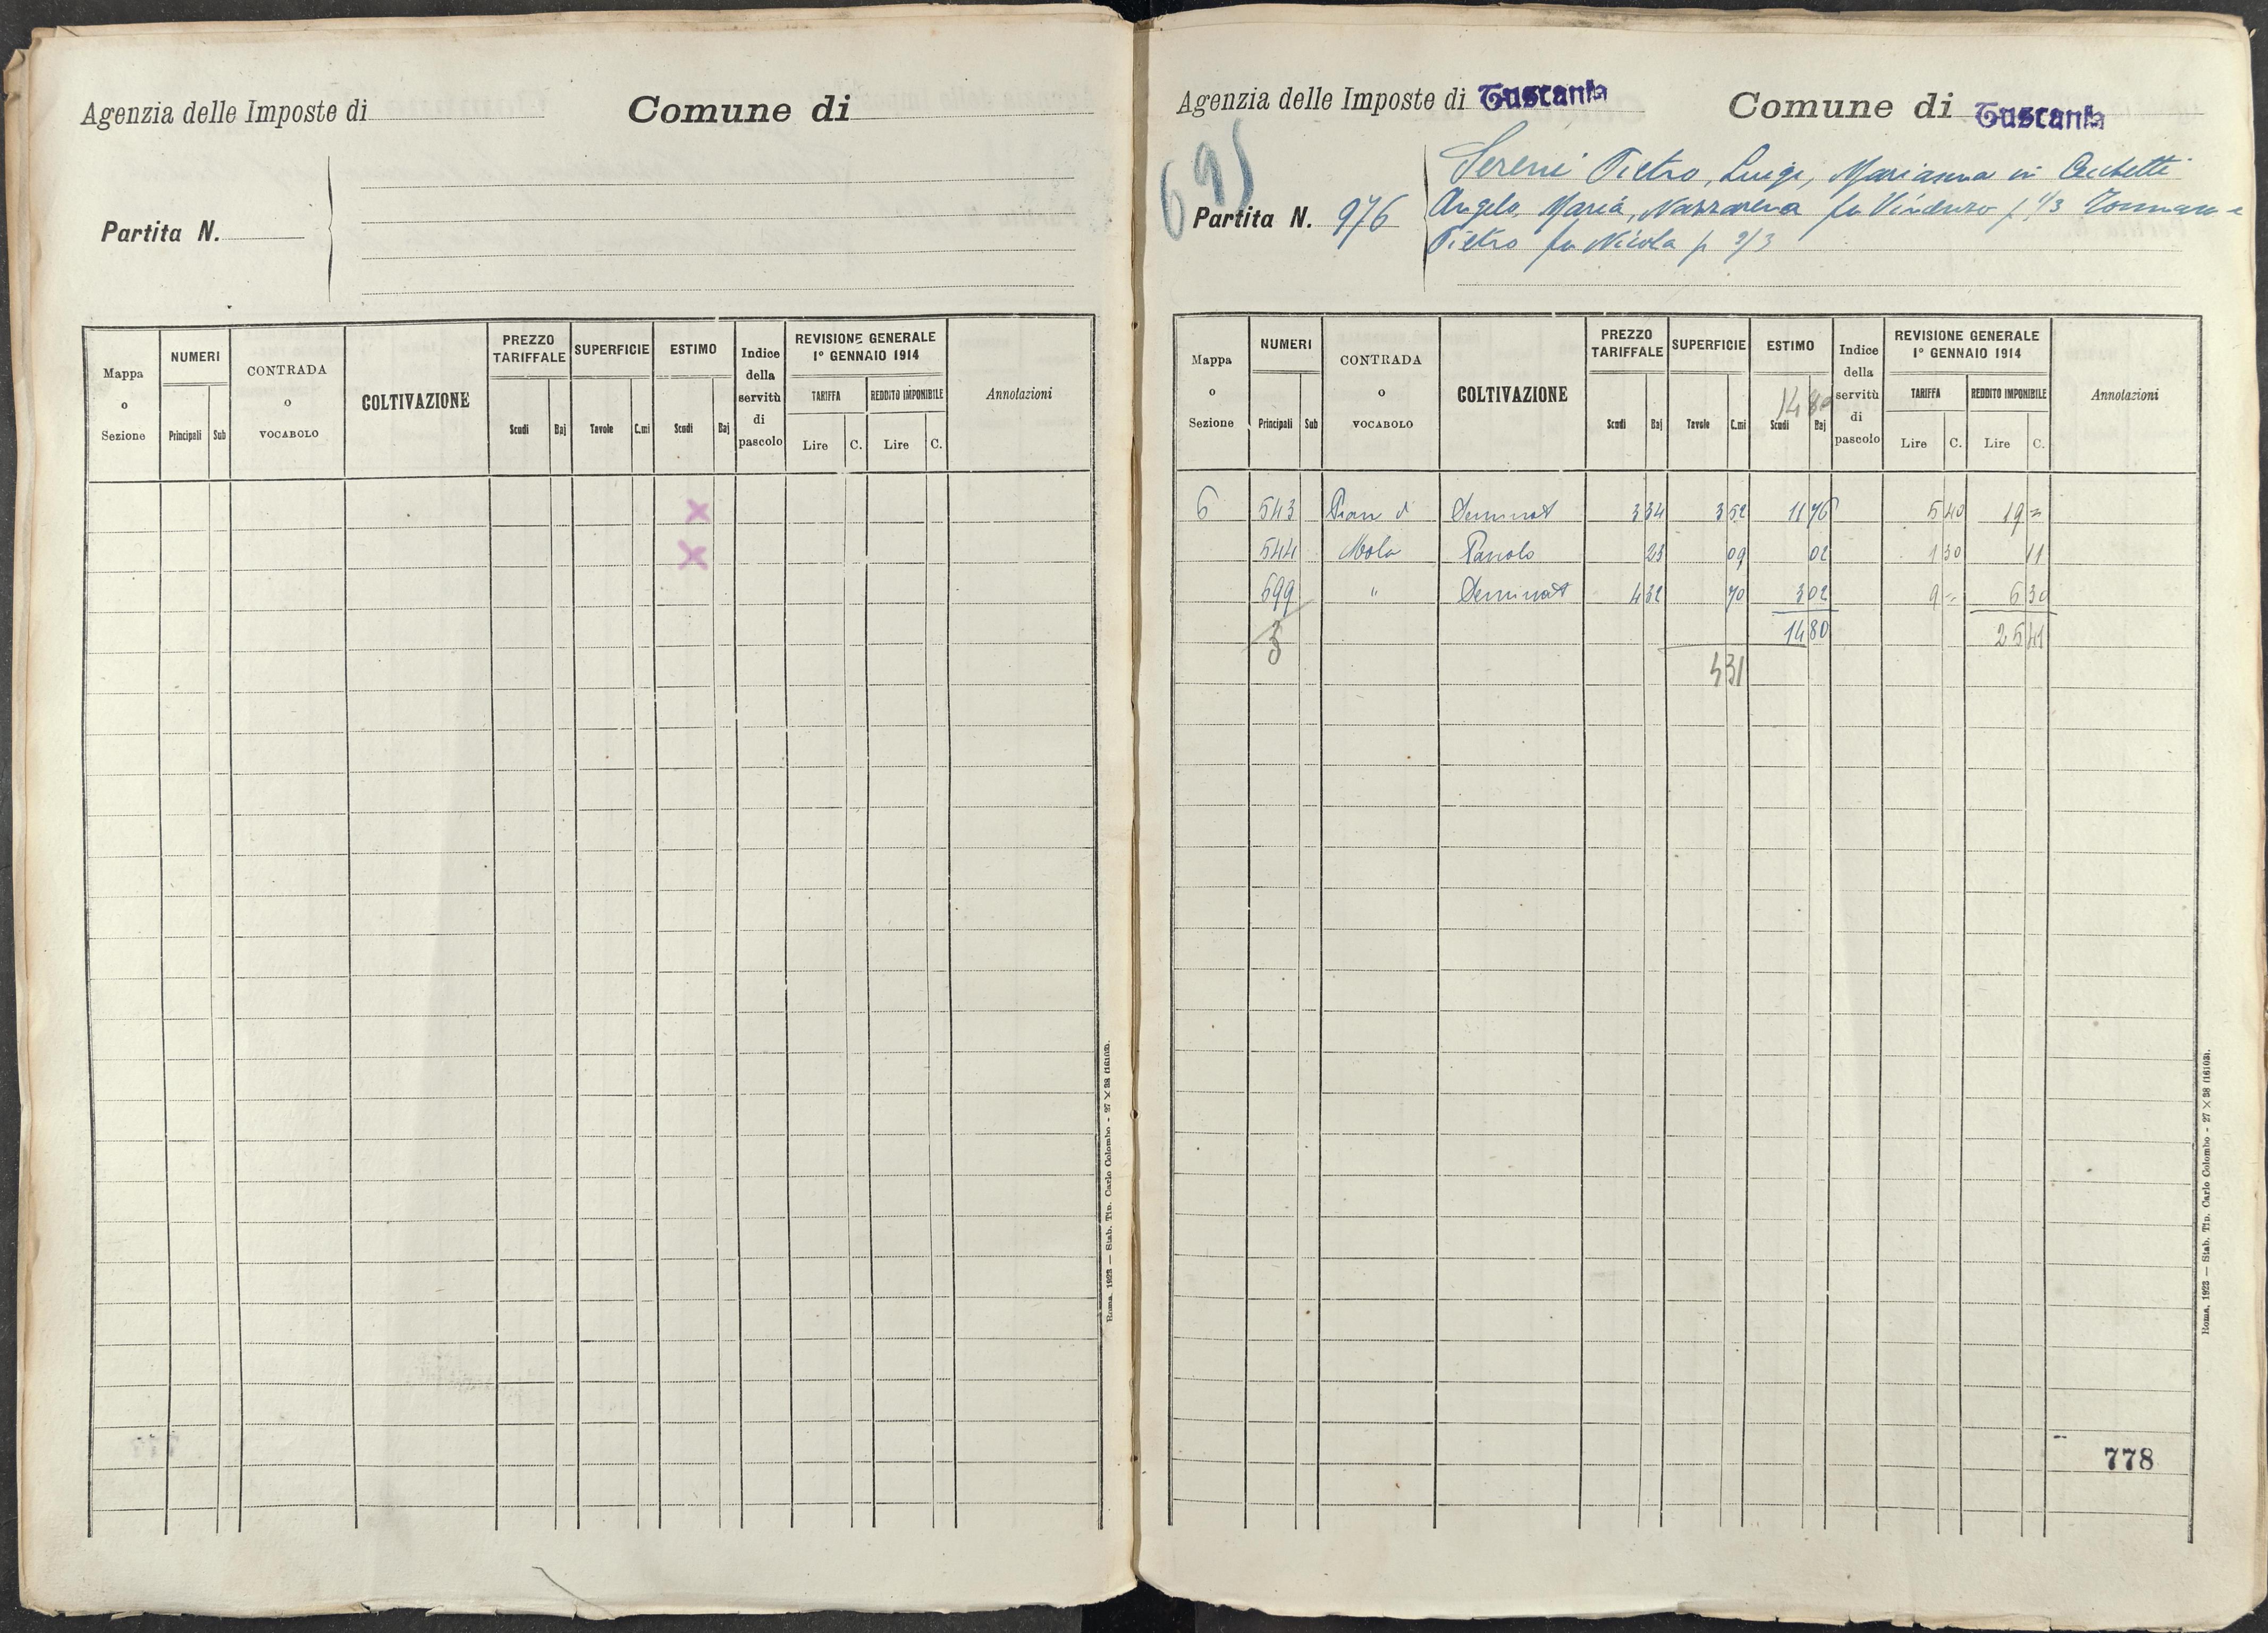 Agenzia delle Imposte di
Comune di
Partita N.
Mappa o Sezione
NUMERI
Principali Sub
CONTRADA o VOCABOLO
COLTIVAZIONE
PREZZO TARIFFALE
Scudi Baj
SUPERFICIE
Tavole C.mi
ESTIMO
Scudi Baj
Indice della servitù di pascolo
REVISIONE GENERALE 1° GENNAIO 1914
TARIFFA
Lire C.
REDDITO IMPONIBILE
Lire C.
Annotazioni
x
x
Roma, 1923 — Stab. Tip. Carlo Colombo - 27 X 38 (16103).
Agenzia delle Imposte di Tuscania
Comune di Tuscania
695
Partita N. 976
Sereni Pietro, Luigi, Marianna in Cecchetti
Angelo, Maria, Nazzarena fu Vincenzo p 1/3 Tommaso e
Pietro fu Nicola p 2/3
Mappa o Sezione
NUMERI
Principali Sub
CONTRADA o VOCABOLO
COLTIVAZIONE
PREZZO TARIFFALE
Scudi Baj
SUPERFICIE
Tavole C.mi
ESTIMO
14 80
Scudi Baj
Indice della servitù di pascolo
REVISIONE GENERALE 1° GENNAIO 1914
TARIFFA
Lire C.
REDDITO IMPONIBILE
Lire C.
Annotazioni
6 543 Pian d Seminat 3 34 3 52 11 76 5 40 19 =
544 Mola Pascolo 23 09 02 1 30 11
599 " Seminat 4 32 70 3 02 9 = 6 30
3 14 80 25 41
4 31
778
Roma, 1923 — Stab. Tip. Carlo Colombo - 27 X 38 (16103).